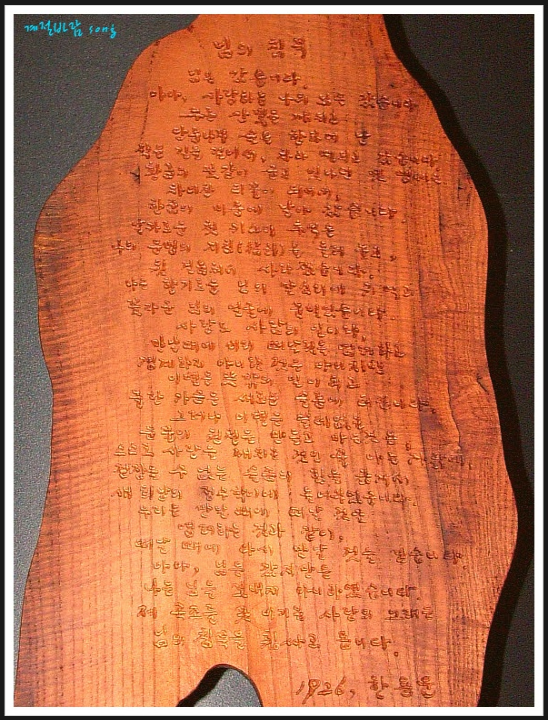 계절바람 song
님의 침묵
님은 갔습니다.
아아, 사랑하는 나의 님은 갔습니다
푸른 산빛을 깨치고
단풍나무 숲을 향하여 난
작은 길을 걸어서, 차마 떨치고 갔습니다
황금의 꽃같이 굳고 빛나던 옛 맹서는
차디찬 티끌이 되어서,
한숨의 미풍에 날아 갔습니다
날카로운 첫 키스의 추억은
나의 운명의 지침 을 돌려 놓고,
뒷걸음쳐서 사라졌습니다.
나는 향기로운 님의 말소리에 귀먹고
꽃다운 님의 얼굴에 눈멀었습니다.
사랑도 사람의 일이라,
만날 때에 미리 떠날 것을 염려하고
경계하지 아니한 것은 아니지만
이별은 뜻밖의 일이 되고
놀란 가슴은 새로운 슬픔에 터집니다.
그러나 이별은 쓸데없는
눈물의 원천을 만들고 마는 것은,
스스로 사랑을 깨치는 것인 줄 아는 까닭에,
걷잡을 수 없는 슬픔의 힘을 옮겨서
새 희망의 정수박이에 들어부었습니다.
우리는 만날 때에 떠날 것을
염려하는 것과 같이,
떠날 때에 다시 만날 것을 믿습니다.
아아, 님은 갔지마는
나는 님을 보내지 아니하였습니다
제 곡조를 못 이기는 사랑의 노래는
님의 침묵을 휩싸고 돕니다.
1926, 한용운